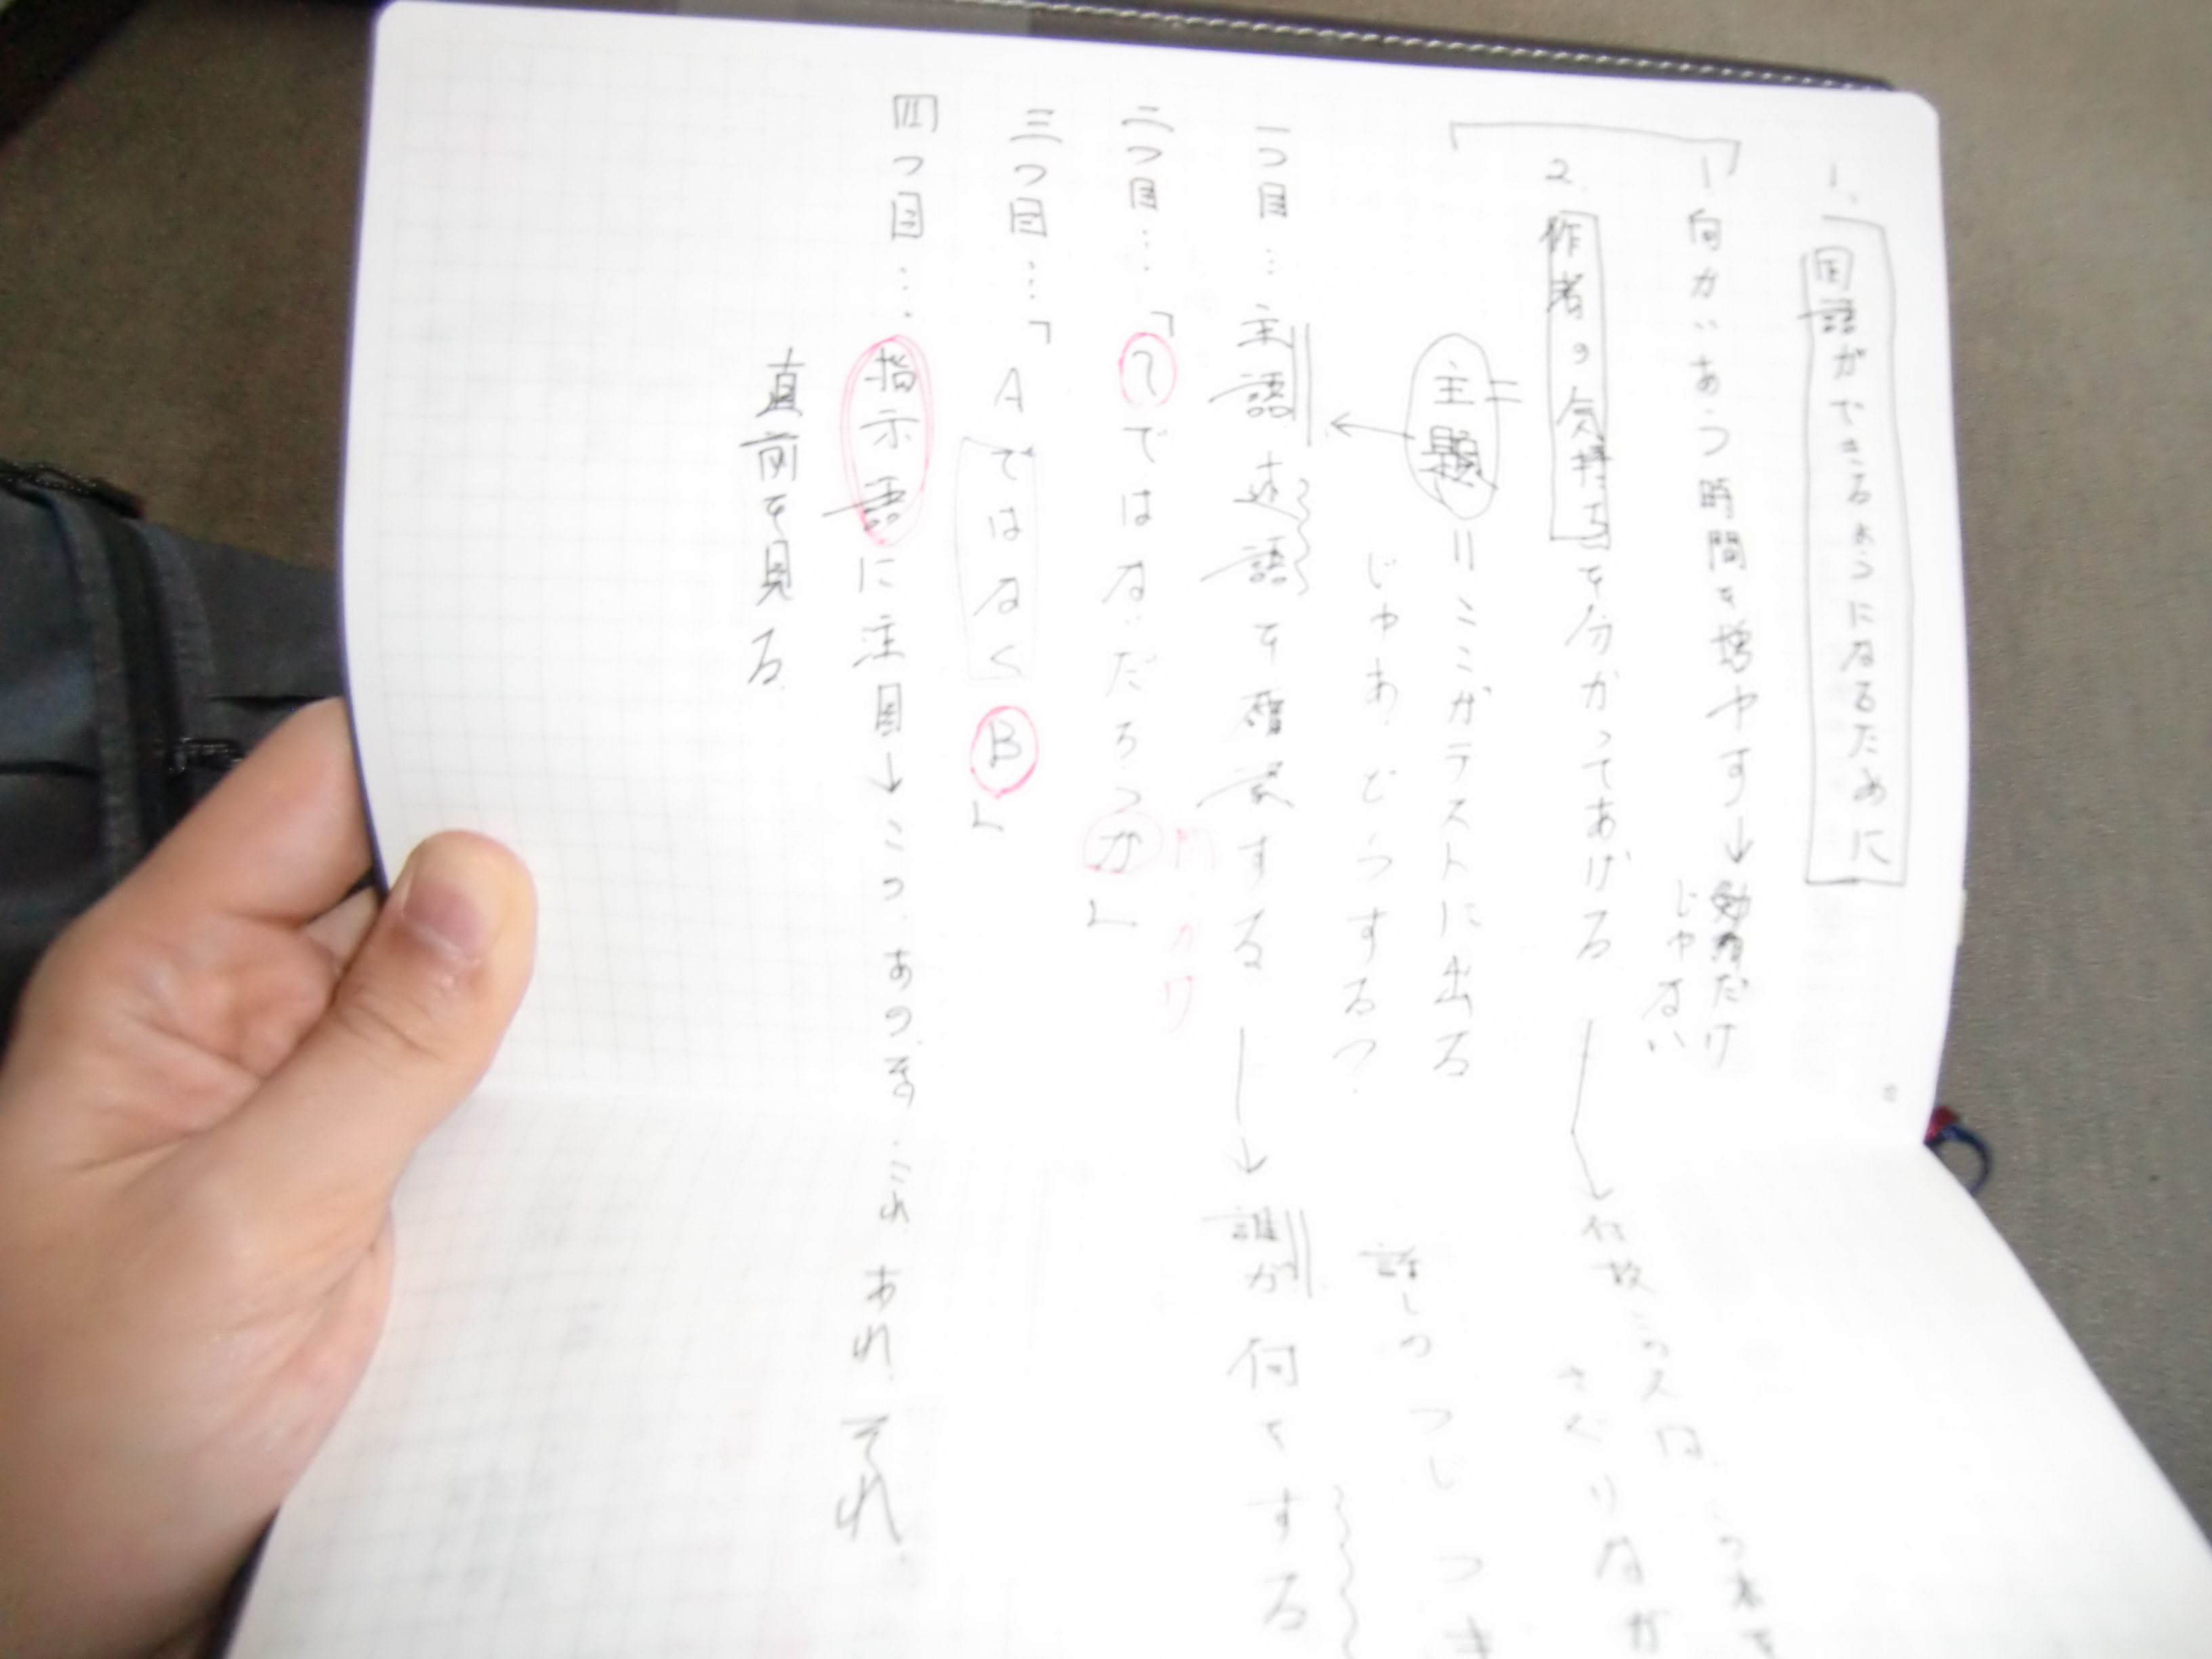 1. 国語ができるようになるために
1. 向かいあう時間を増やす→勉強だけ
じゃない
2. 作者の気持ちを分かってあげる
何故この文は、
さぐりなが
主題＝ここがテストに出る
じゃあ、どうする？
話しの
一つ目…主語述語を確認する→誰が何をする
二つ目…「?ではないだろうか」
問いかけ
三つ目…「AではなくB」
四つ目…指示語に注目→この、あの、その、これ、あれ、それ。
直前を見る。